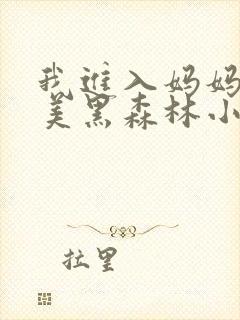 我进入妈妈
美黑森林小
拉里